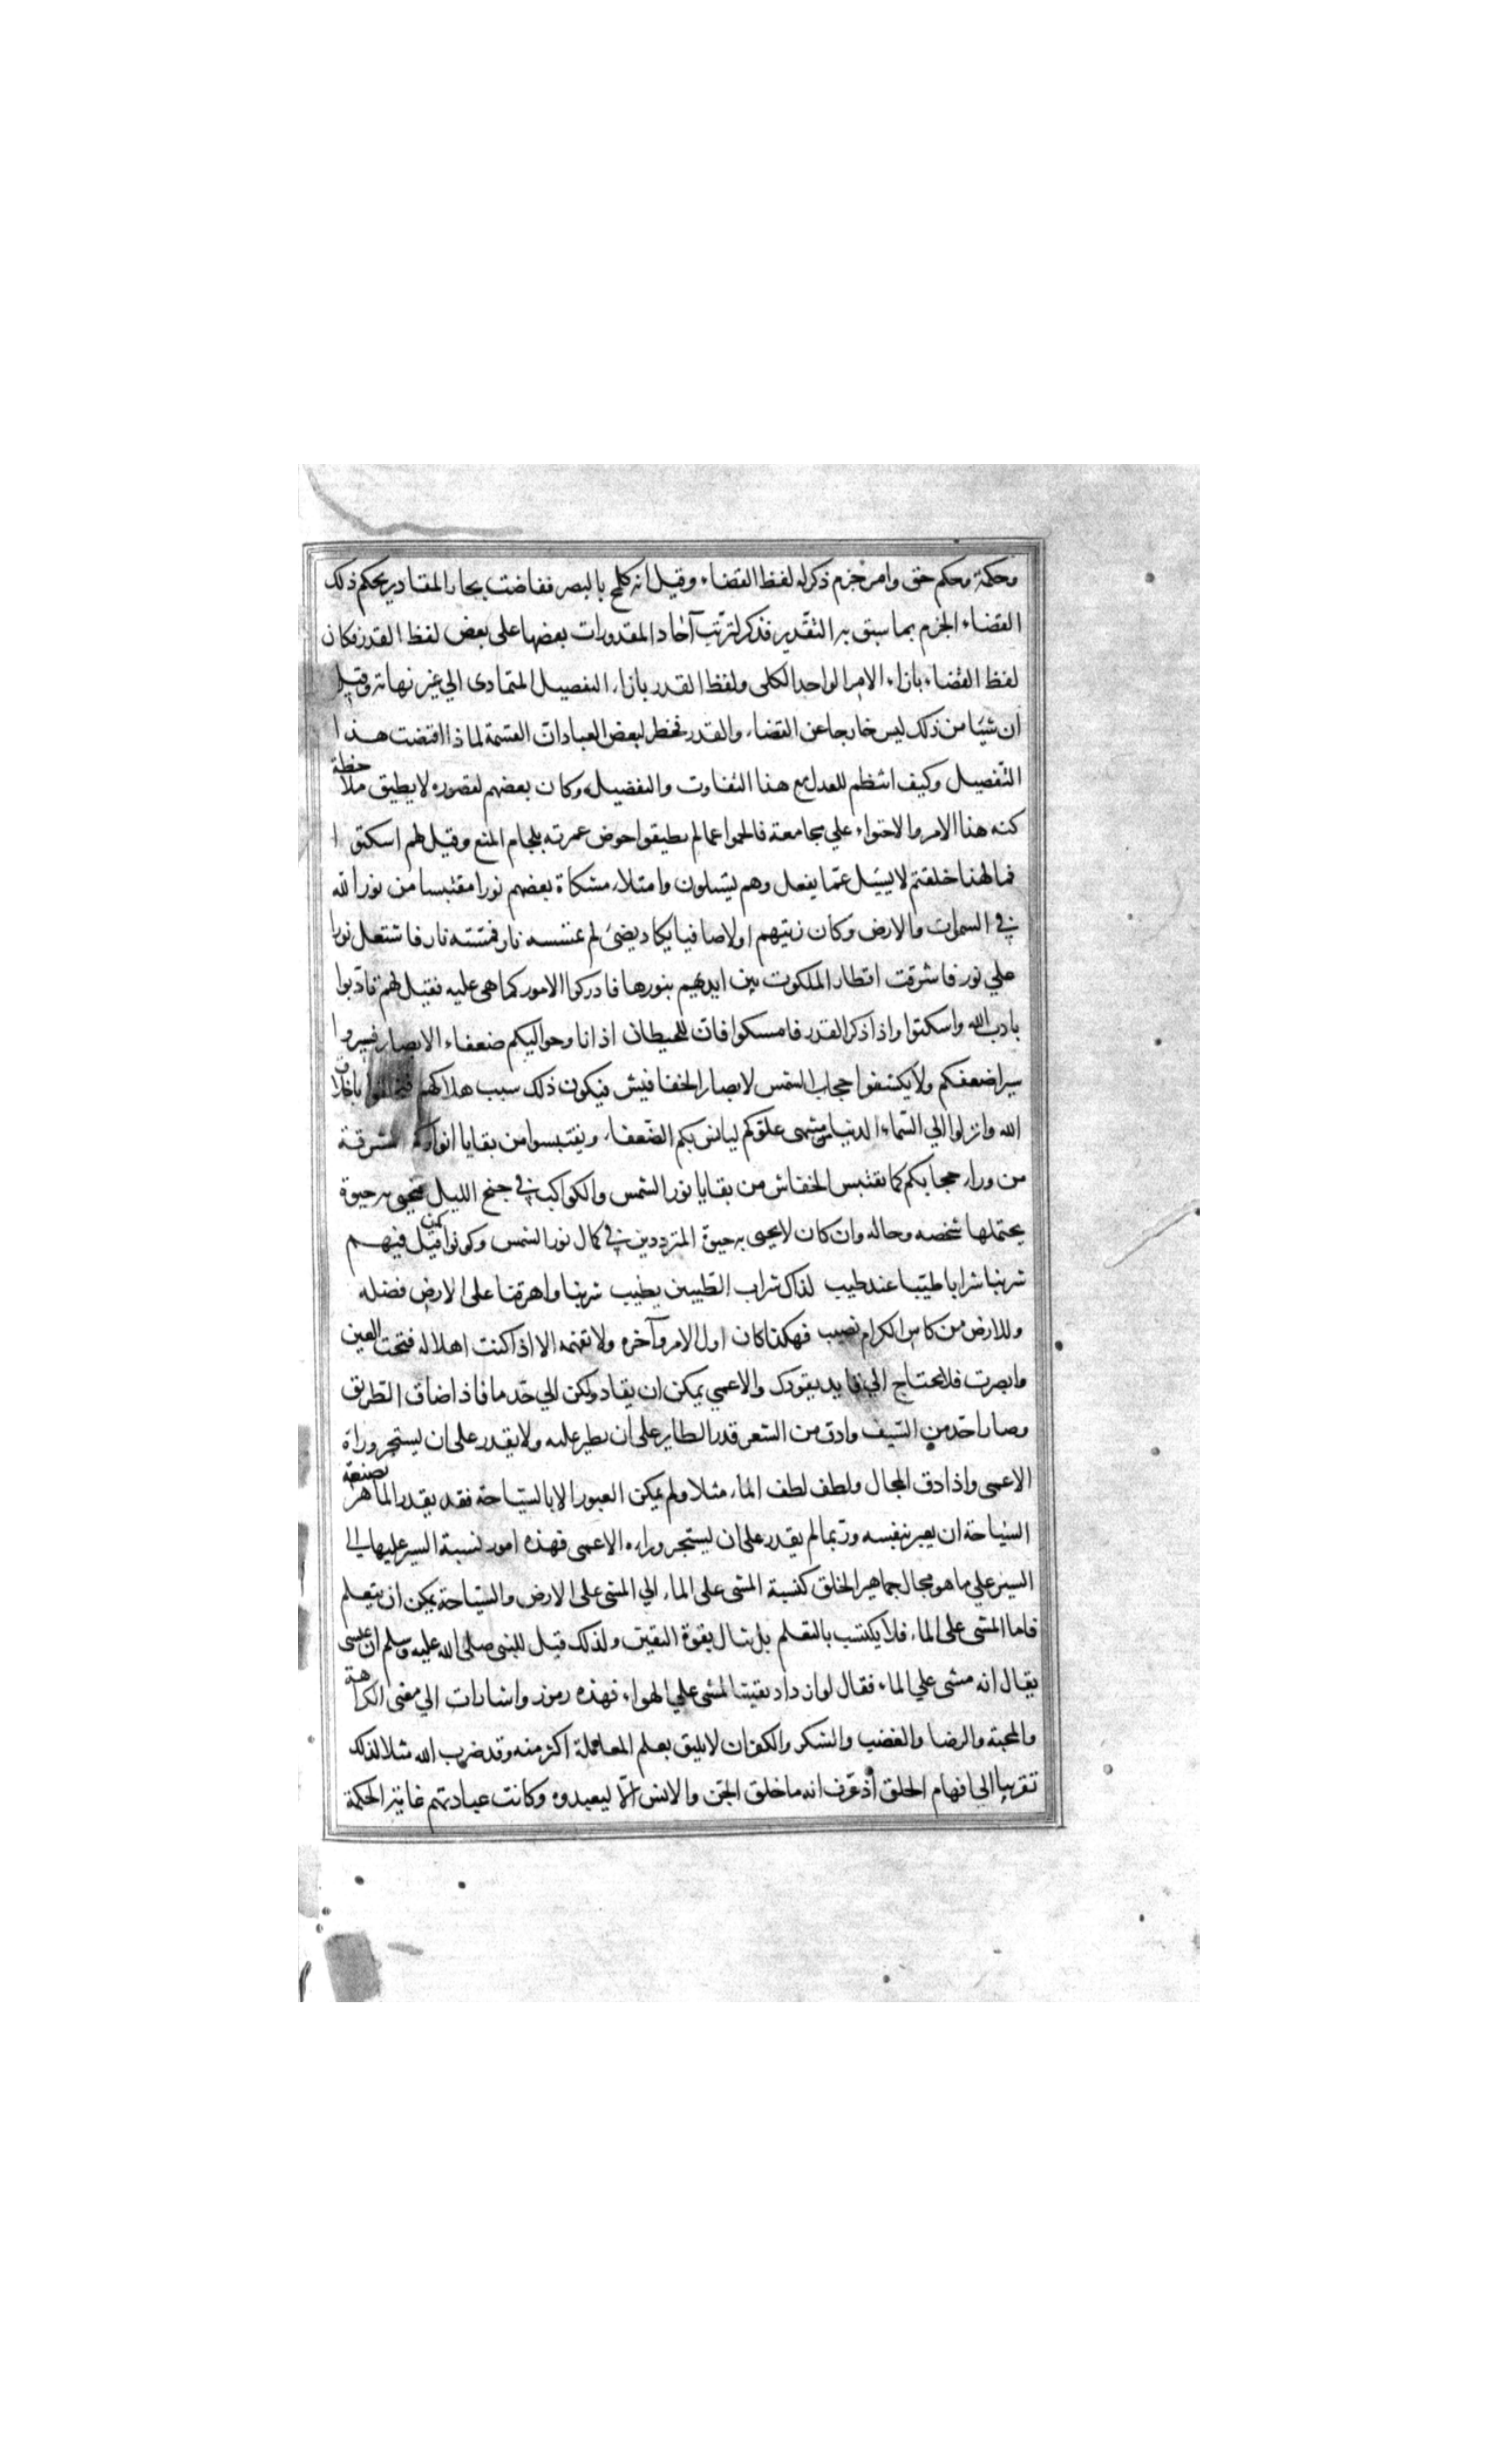 وحكمة وحكم حق وامر جزم ذكر له لفظ القضاء وقيل انه كلمح بالبصر ففاضت بحار المقادير بحكم ذلك
القضاء الجزم بما سبق به التقدير فذكر لترتب آحاد المقدورات بعضها على بعض لفظ القدر فكان
لفظ القضاء بازاء الامر الواحد الكلى ولفظ القدر بازاء التفصيل المتمادى الي غير نهاية وقيل
ان شيئا من ذلك ليس خارجا عن القضاء والقدر فخطر لبعض العبادات القسمة لماذا اقتضت هذا
التفصيل وكيف انتظم للعدل مع هذا التفاوت والتفضيل وكان بعضهم لقصوره لا يطيق ملاحظة
كنه هذا الامر والاحتواء علي مجامعة فالجموا عما لم يطيقوا خوض غمرته بلجام المنع وقيل لهم اسكتوا
فما لهذا خلقتم لا يسئل عما يفعل وهم يسئلون وامتلاء مشكاة بعضهم نورا مقتبسا من نور الله
في السموات والارض وكان زيتهم اولا صافيا يكاد يضئ لم تمسسه نار فمسته نار فاشتعل نورا
علي نور فاشرقت اقطار الملكوت بين ايديهم بنورها فادركوا الامور كما هى عليه فقيل لهم تادبوا
بادب الله واسكتوا واذا ذكر القدر فامسكوا فان للحيطان اذانا وحواليكم ضعفاء الابصار فسيروا
سير اضعفكم ولا يكشفوا حجاب الشمس لابصار الخفافيش فيكون ذلك سبب هلاكهم فتخلقوا باخلاق
الله وانزلوا الي السماء الدنيا من منتهى علوكم ليانس بكم الضعفاء ويقتبسوا من بقايا انواركم المشرقة
من وراء حجابكم كما يقتبس الخفاش من بقايا نور الشمس والكواكب في جنح الليل فيحيى به حيوة
يحتملها شخصه وحاله وان كان لا يحيى به حيوة المترددين في كمال نور الشمس وكونوا كمن قيل فيهم
شربنا شرابا طيبا عند طيب كذاك شراب الطيبين يطيب شربنا واهرقنا على الارض فضله
وللارض من كاس الكرام نصيب فهكذا كان اول الامر وآخره ولا تفهمه الا اذا كنت اهلا له فتحت العين
وابصرت فلا تحتاج الي قايد يقودك والاعمي يمكن ان يقاد ولكن الي حد ما فاذا ضاق الطريق
وصار احد من السيف وادق من الشعر قدر الطاير على ان يطير عليه ولا يقدر على ان يستجر وراة
الاعمى واذا دق المجال ولطف لطف الماء مثلا ولم يمكن العبور الا بالسباحة فقد يقدر الماهر بصنعة
السباحة ان يعبر بنفسه وربما لم يقدر على ان يستجر وراءه الاعمى فهذه امور نسبة السير عليها الي
السير علي ما هو مجال جماهير الخلق كنسبة المشى على الماء الي المشى على الارض والسباحة يمكن ان يتعلم
فاما المشى على الماء فلا يكتسب بالتعلم بل ينال بقوة اليقين ولذلك قيل للنبى صلى الله عليه وسلم ان عيسى
يقال انه مشى علي الماء فقال لو ازداد يقينا لمشى علي الهواء فهذه رموز واشارات الي معنى الكراهة
والمحبة والرضا والغضب والشكر والكفران لا يليق بعلم المعاملة اكثر منه وقد ضرب الله مثلا لذلك
تقريبا الي افهام الخلق اذ عرف انه ما خلق الجن والانس الا ليعبدوه وكانت عبادتهم غاية الحكمة